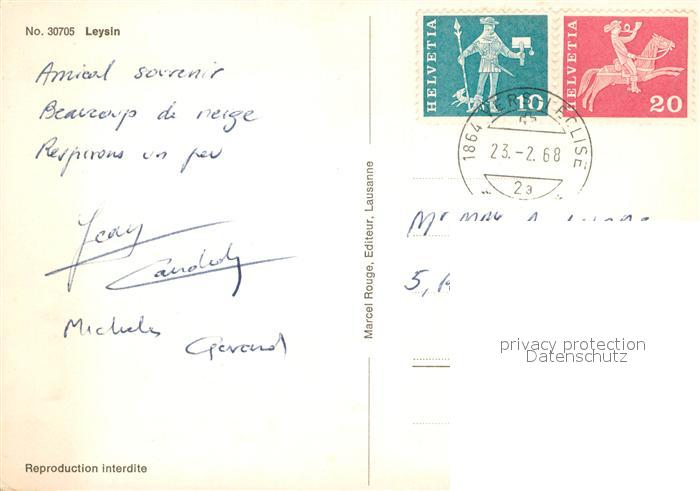 No. 30705 Leysin
Amical souvenir
Beaucoup de neige
Respirons un peu
Jean
Michele
Gerard
Reproduction interdite
Marcel Rouge, Editeur, Lausanne
HELVETIA
10
HELVETIA
20
1864 VERS L'EGLISE
23.-2.68
2a
Mr
5,
privacy protection
Datenschutz